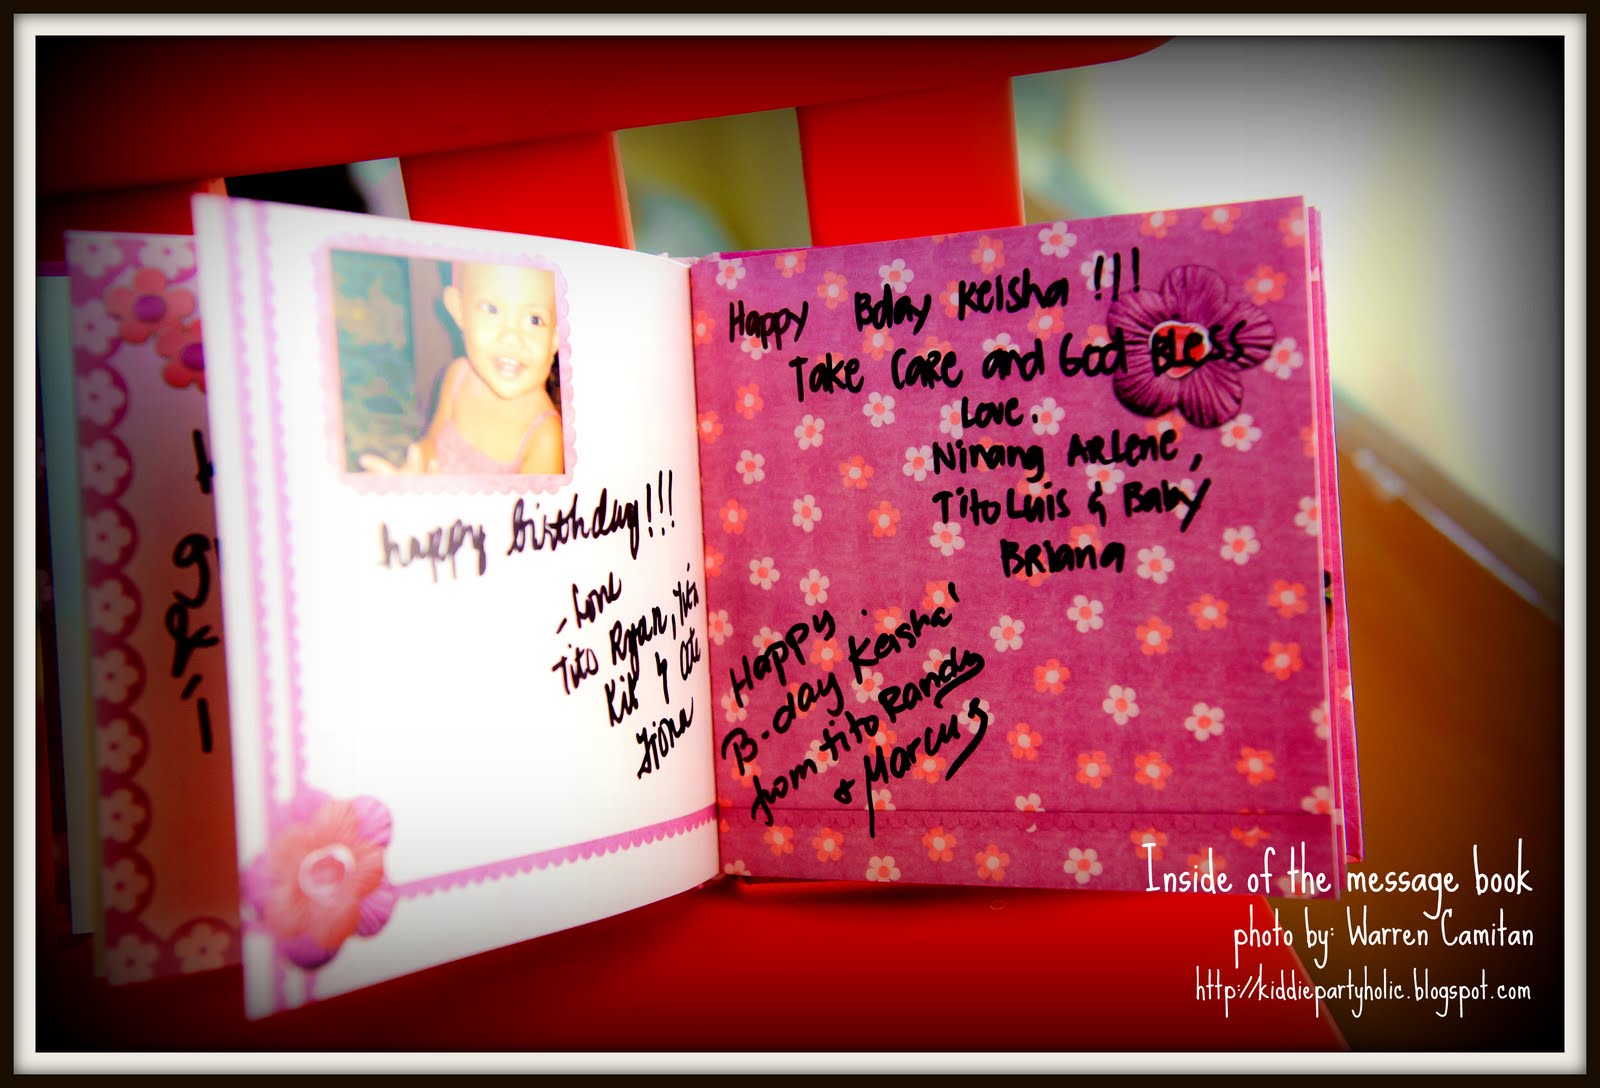 happy birthday!!!
- Love
Tito Ryan, Tita
Kit & Ate
Fiona
Happy Bday Keisha !!!
Take Care and God Bless
Love.
Ninang Arlene,
Tito Luis & Baby
Briana
Happy
B-day Keisha'
from tito Randy
& Marcus
Inside of the message book
photo by: Warren Camitan
http://kiddiepartyholic.blogspot.com